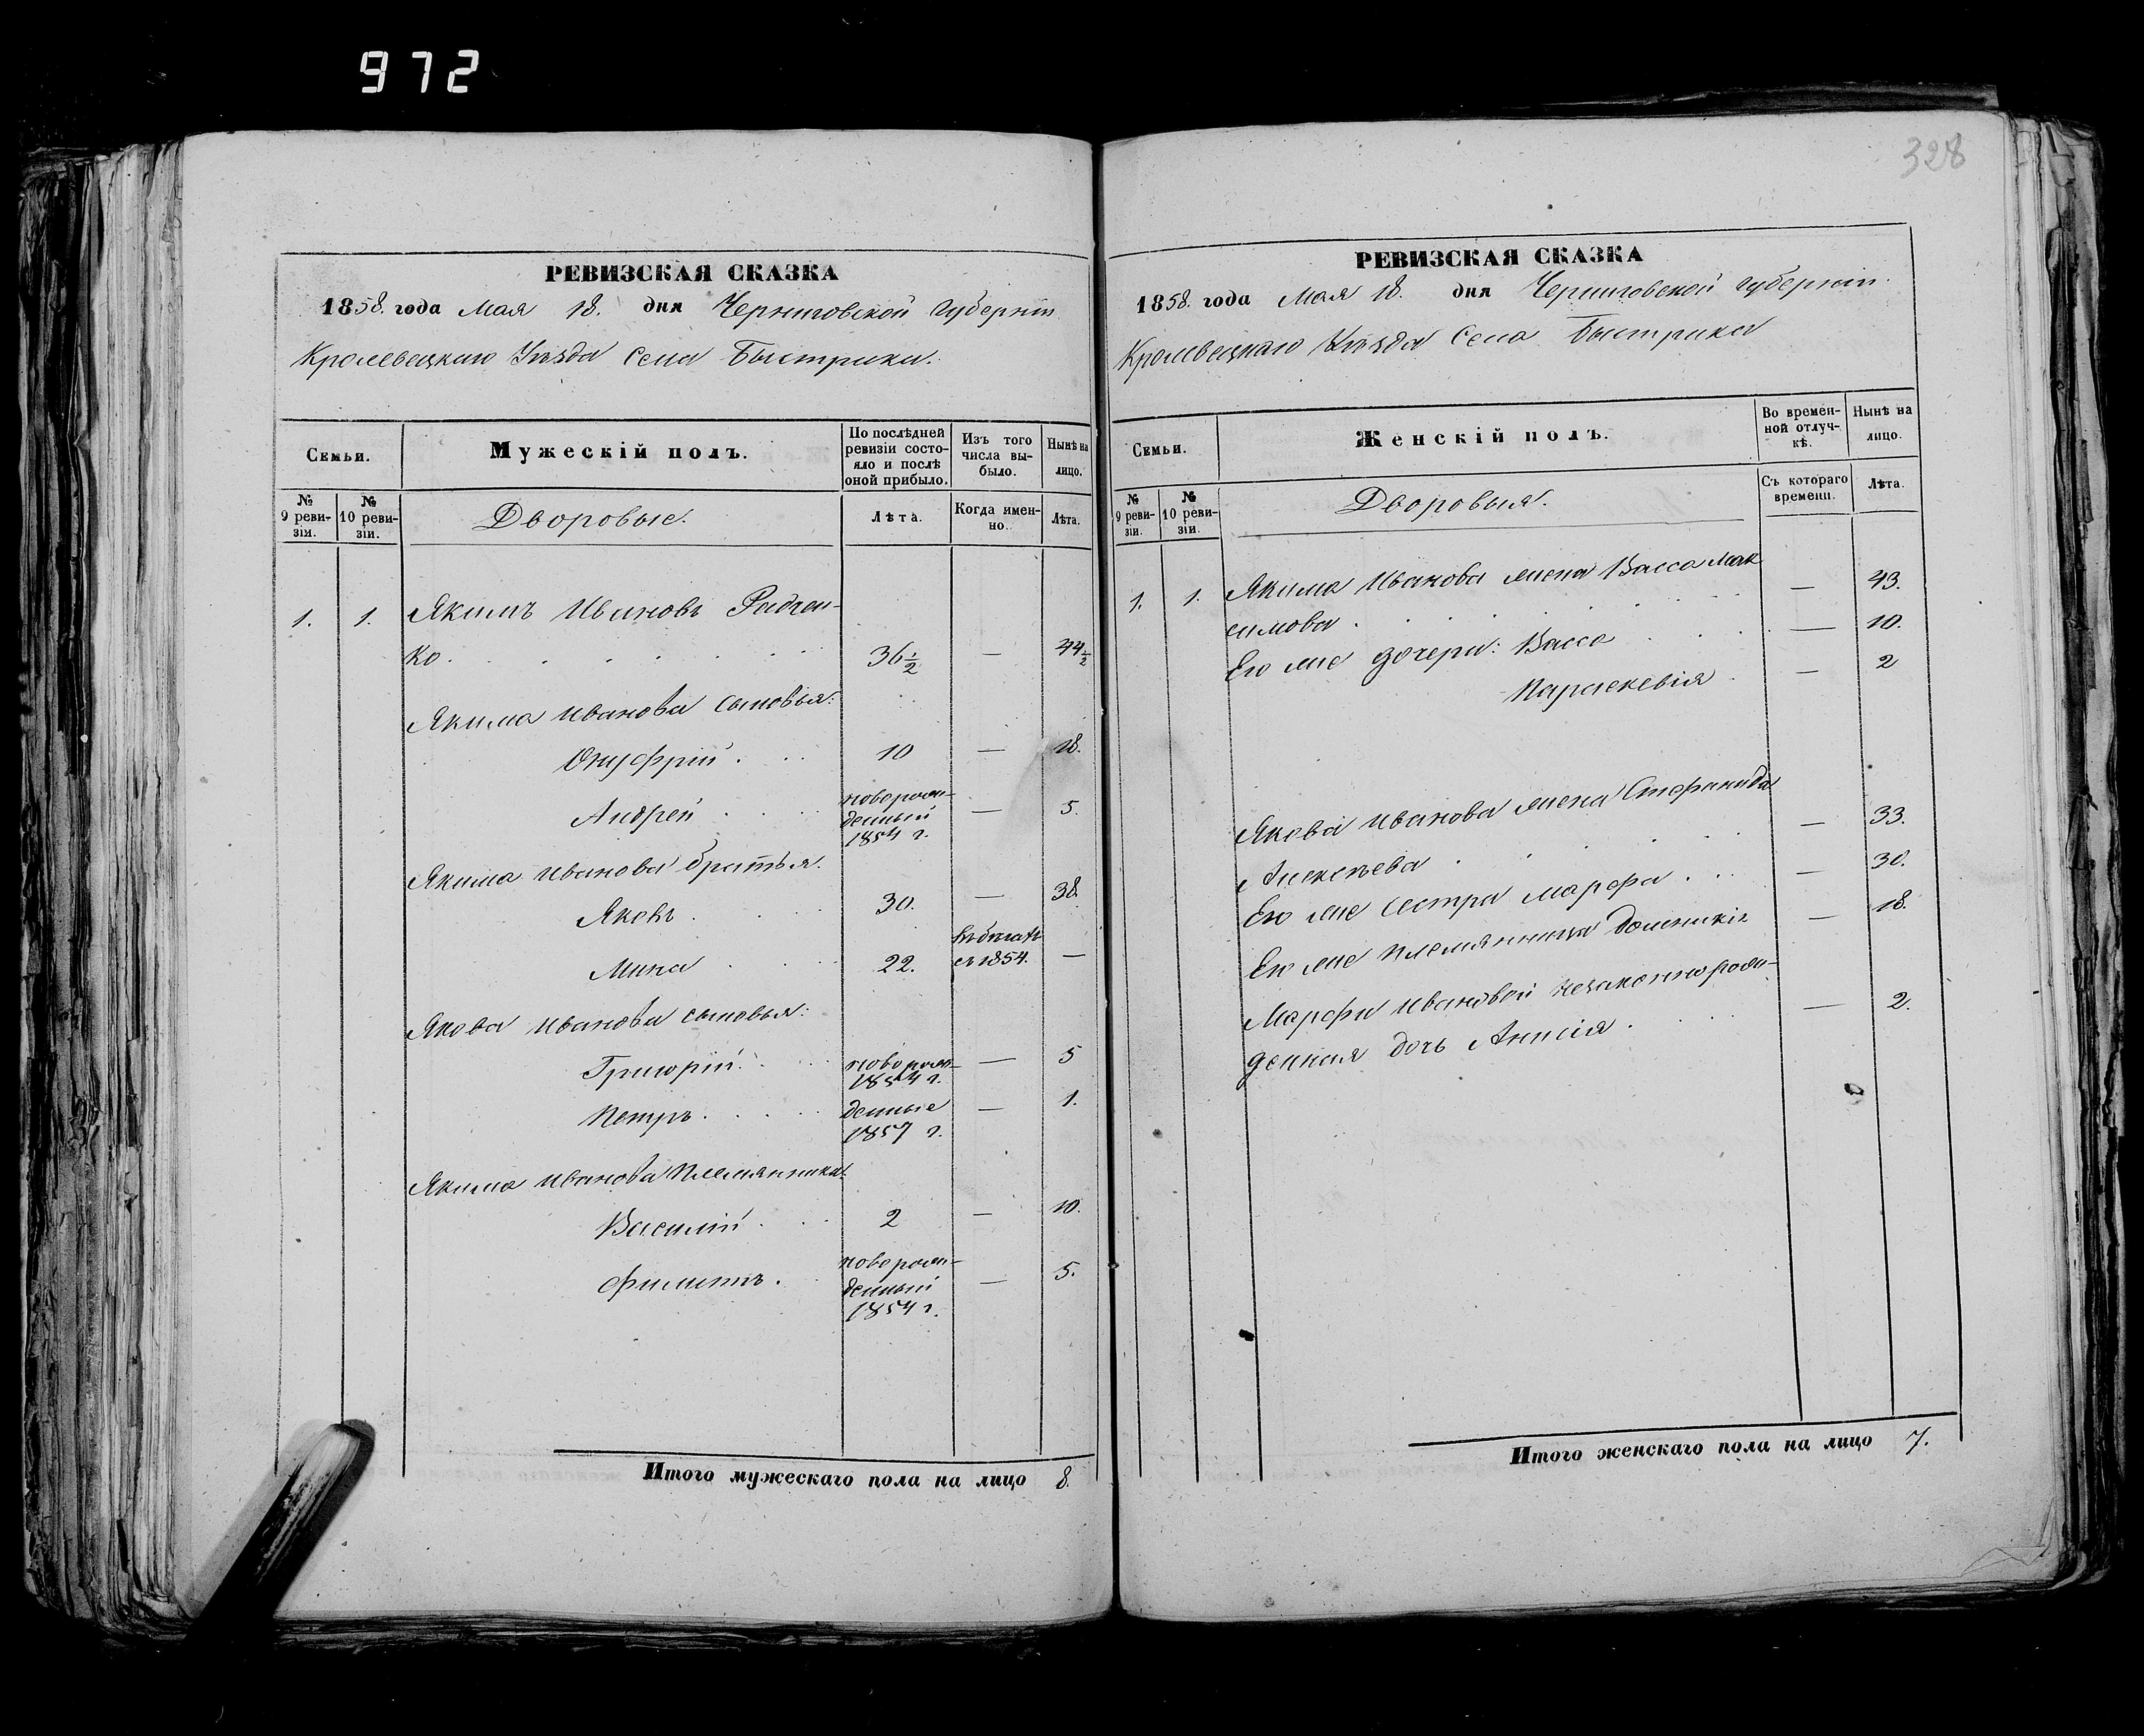 972
328
РЕВИЗСКАЯ СКАЗКА
1858. года Мая 18. дня Черниговской губерніи
Кролевецкаго Уѣзда Села Быстрика.
Семьи.
Мужескій полъ.
По послѣдней ревизіи состояло и послѣ оной прибыло.
Изъ того числа выбыло.
Нынѣ на лицо.
№ 9 ревизіи.
№ 10 ревизіи.
Дворовые.
Лѣта.
Когда именно.
Лѣта.
1. 1. Якимъ Ивановъ Радчен-
ко. 36 1/2 — 44 1/2
Якима Иванова сыновья:
Онуфрій. 10 — 18.
Андрей новорож-
денный
1854 г. — 5.
Якима Иванова братья.
Яковъ. 30. — 38.
Мина 22. въ бѣгахъ
съ 1854. —
Якова Иванова сыновья:
Григорій. новорож-
1854 г. — 5
Петръ. денные
1857 г. — 1.
Якима Иванова племянники.
Василій. 2 — 10.
Филиппъ. новорож-
денный
1854 г. — 5.
Итого мужескаго пола на лицо 8.
РЕВИЗСКАЯ СКАЗКА
1858. года Мая 18. дня Черниговской губерніи.
Кролевецкаго Уѣзда Села Быстрика
Семьи.
Женскій полъ.
Во временной отлучкѣ.
Нынѣ на лицо.
№ 9 ревизіи.
№ 10 ревизіи.
Дворовыя.
Съ котораго времени.
Лѣта.
1. 1. Якима Иванова жена Васса Мак
симова. — 43.
Его же дочери: Васса — 10.
Параскевія — 2
Якова Иванова жена Стефанида
Алексѣева — 33.
Его же сестра Марфа. — 30.
Его же племянница Домникія — 18.
Марфы Ивановой незаконнорож-
денная дочь Анисія. — 2.
Итого женскаго пола на лицо 7.